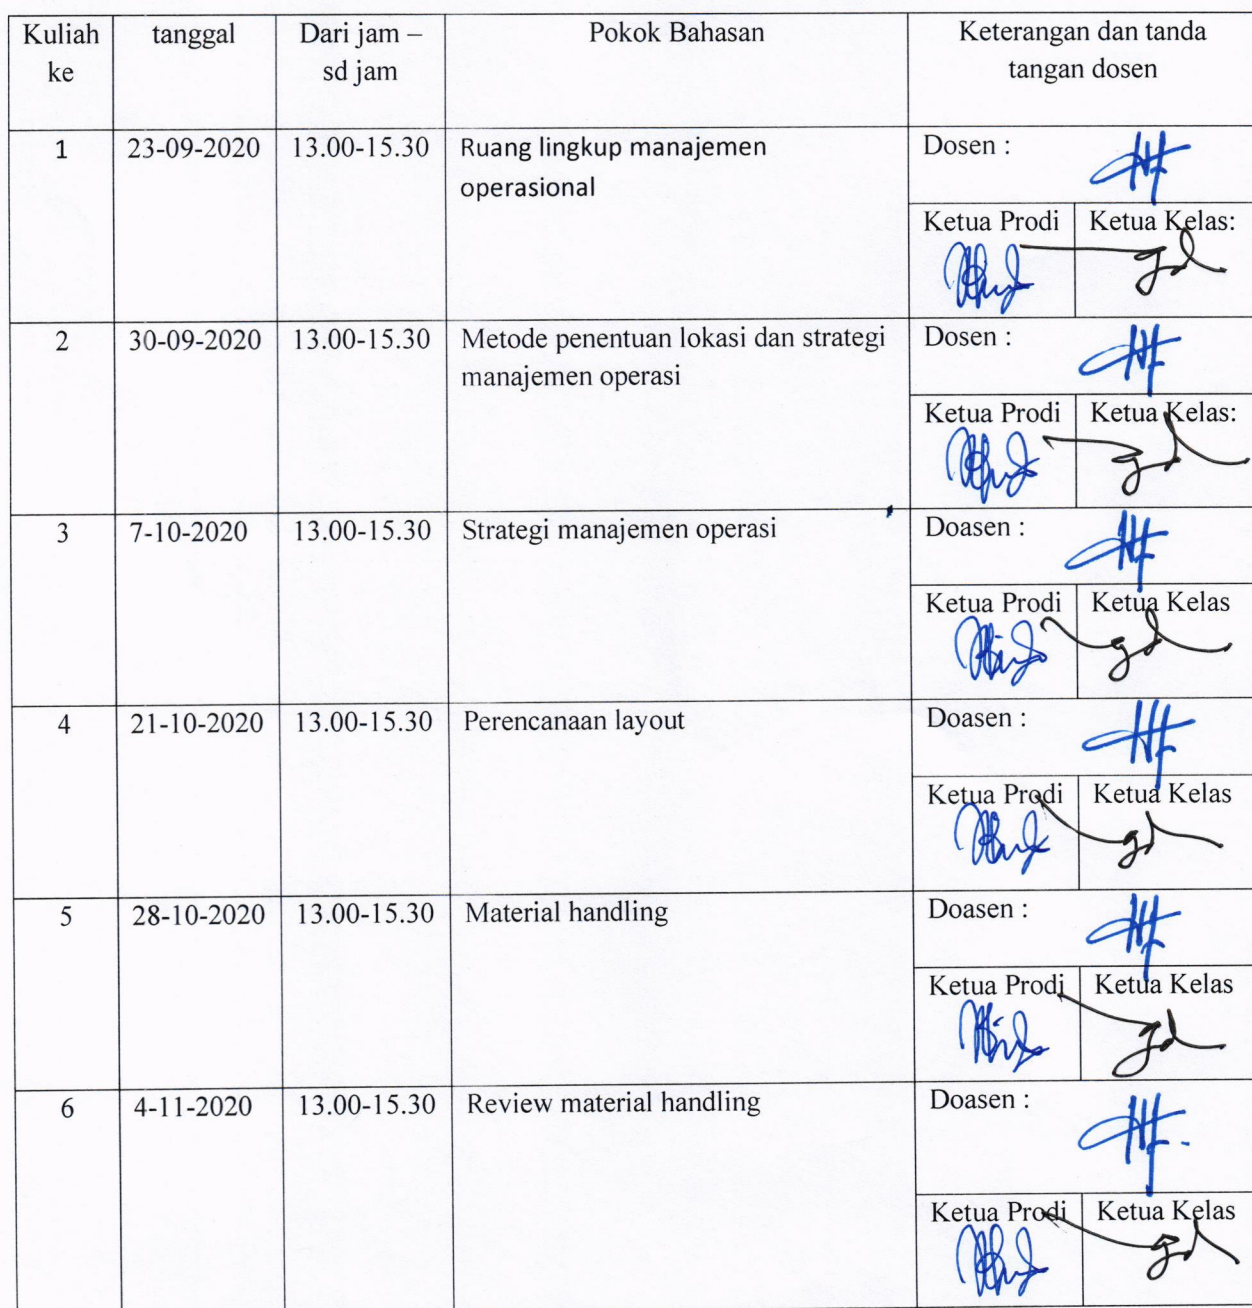 Kuliah ke tanggal Dari jam – sd jam Pokok Bahasan Keterangan dan tanda tangan dosen
1 23-09-2020 13.00-15.30 Ruang lingkup manajemen
operasional
Dosen :
Ketua Prodi Ketua Kelas:
2 30-09-2020 13.00-15.30 Metode penentuan lokasi dan strategi
manajemen operasi
Dosen :
Ketua Prodi Ketua Kelas:
3 7-10-2020 13.00-15.30 Strategi manajemen operasi
Doasen :
Ketua Prodi Ketua Kelas
4 21-10-2020 13.00-15.30 Perencanaan layout
Doasen :
Ketua Prodi Ketua Kelas
5 28-10-2020 13.00-15.30 Material handling
Doasen :
Ketua Prodi Ketua Kelas
6 4-11-2020 13.00-15.30 Review material handling
Doasen :
Ketua Prodi Ketua Kelas